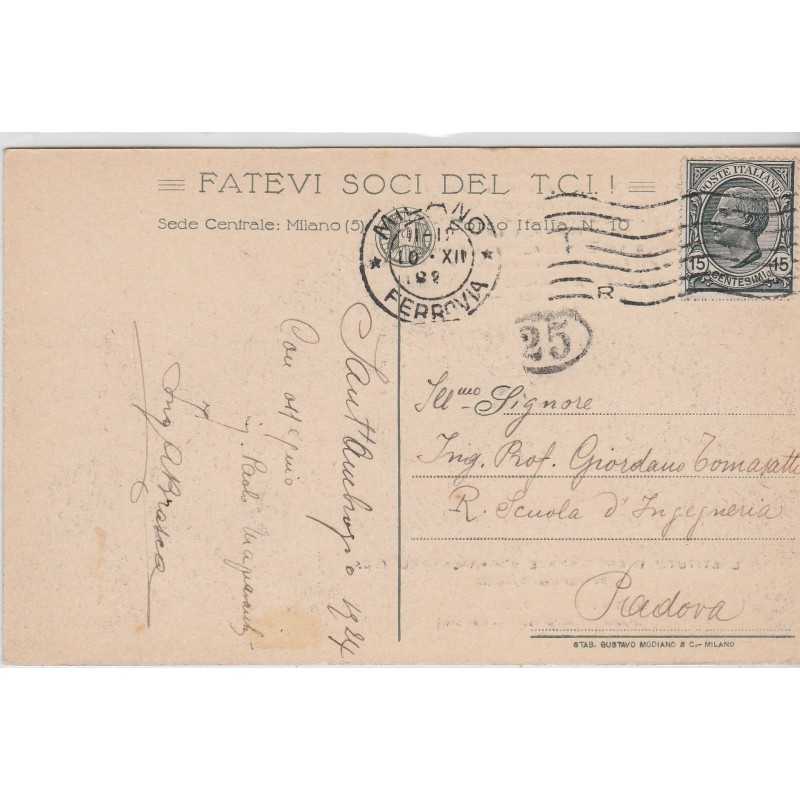 FATEVI SOCI DEL T.C.I. !
Sede Centrale: Milano (5) Corso Italia, N. 10
MILANO
11-12
10 · XII
192
FERROVIA
R
POSTE ITALIANE
15 15
CENTESIMI
25
Sant'Ambrogio 1924
Con ossequio
ing. Paolo
Ing. A Brasca
Ill.mo Signore
Ing. Prof. Giordano Tomasatti
R. Scuola d'Ingegneria
Padova
STAB. GUSTAVO MODIANO & C. - MILANO